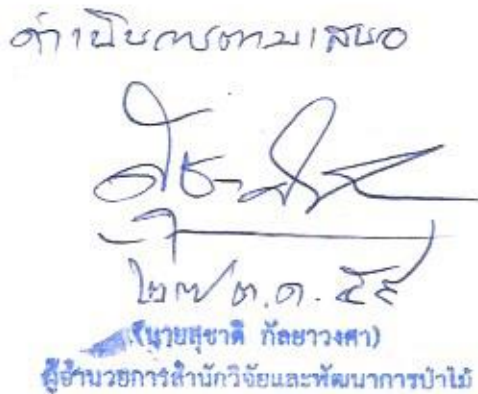 ดำเนินการตามเสนอ
๒๗ ต.ค. ๕๙
(นายสุชาติ กัลยาวงศา)
ผู้อำนวยการสำนักวิจัยและพัฒนาการป่าไม้